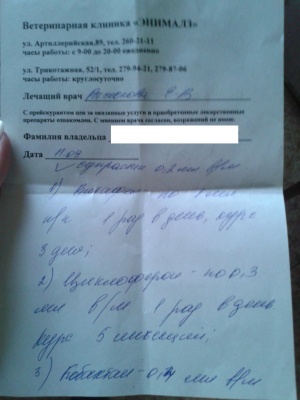 Ветеринарная клиника «ЭНИМАЛЗ»
ул. Артиллерийская,89, тел. 260-21-11
часы работы: с 9-00 до 20-00 ежедневно
ул. Трикотажная, 52/1, тел. 279-94-21, 279-87-06
часы работы: круглосуточно
Лечащий врач Е В
С прейскурантом цен за оказанные услуги и приобретенные лекарственные
препараты ознакомлен. С мнением врача согласен, возражений не имею.
Фамилия владельца
Дата
0.2 мл в/м
1) по 1 мл
п/к 1 раз в день, курс
3 дня;
2) Циклоферон - по 0,3
мл в/м 1 раз в день
курс 5 инъекций;
3) Кобактан - 0,4 мл в/м